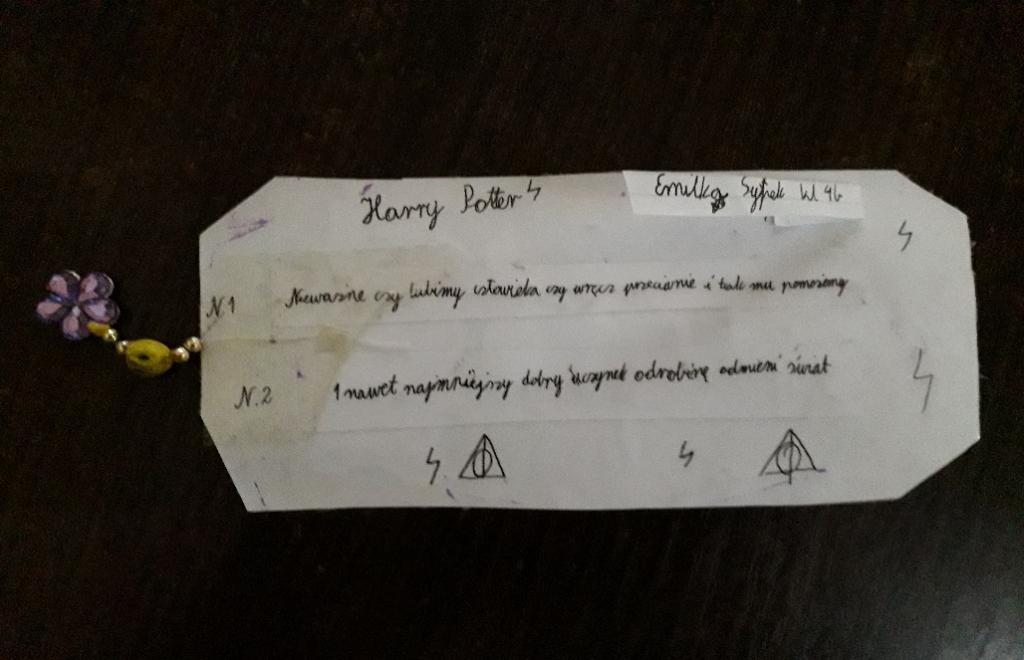 Harry Potter
Emilka Sypek kl 4b
N.1 Nieważne czy lubimy człowieka czy wręcz przeciwnie i tak mu pomożemy
N.2 I nawet najmniejszy dobry uczynek odrobinę odmieni świat